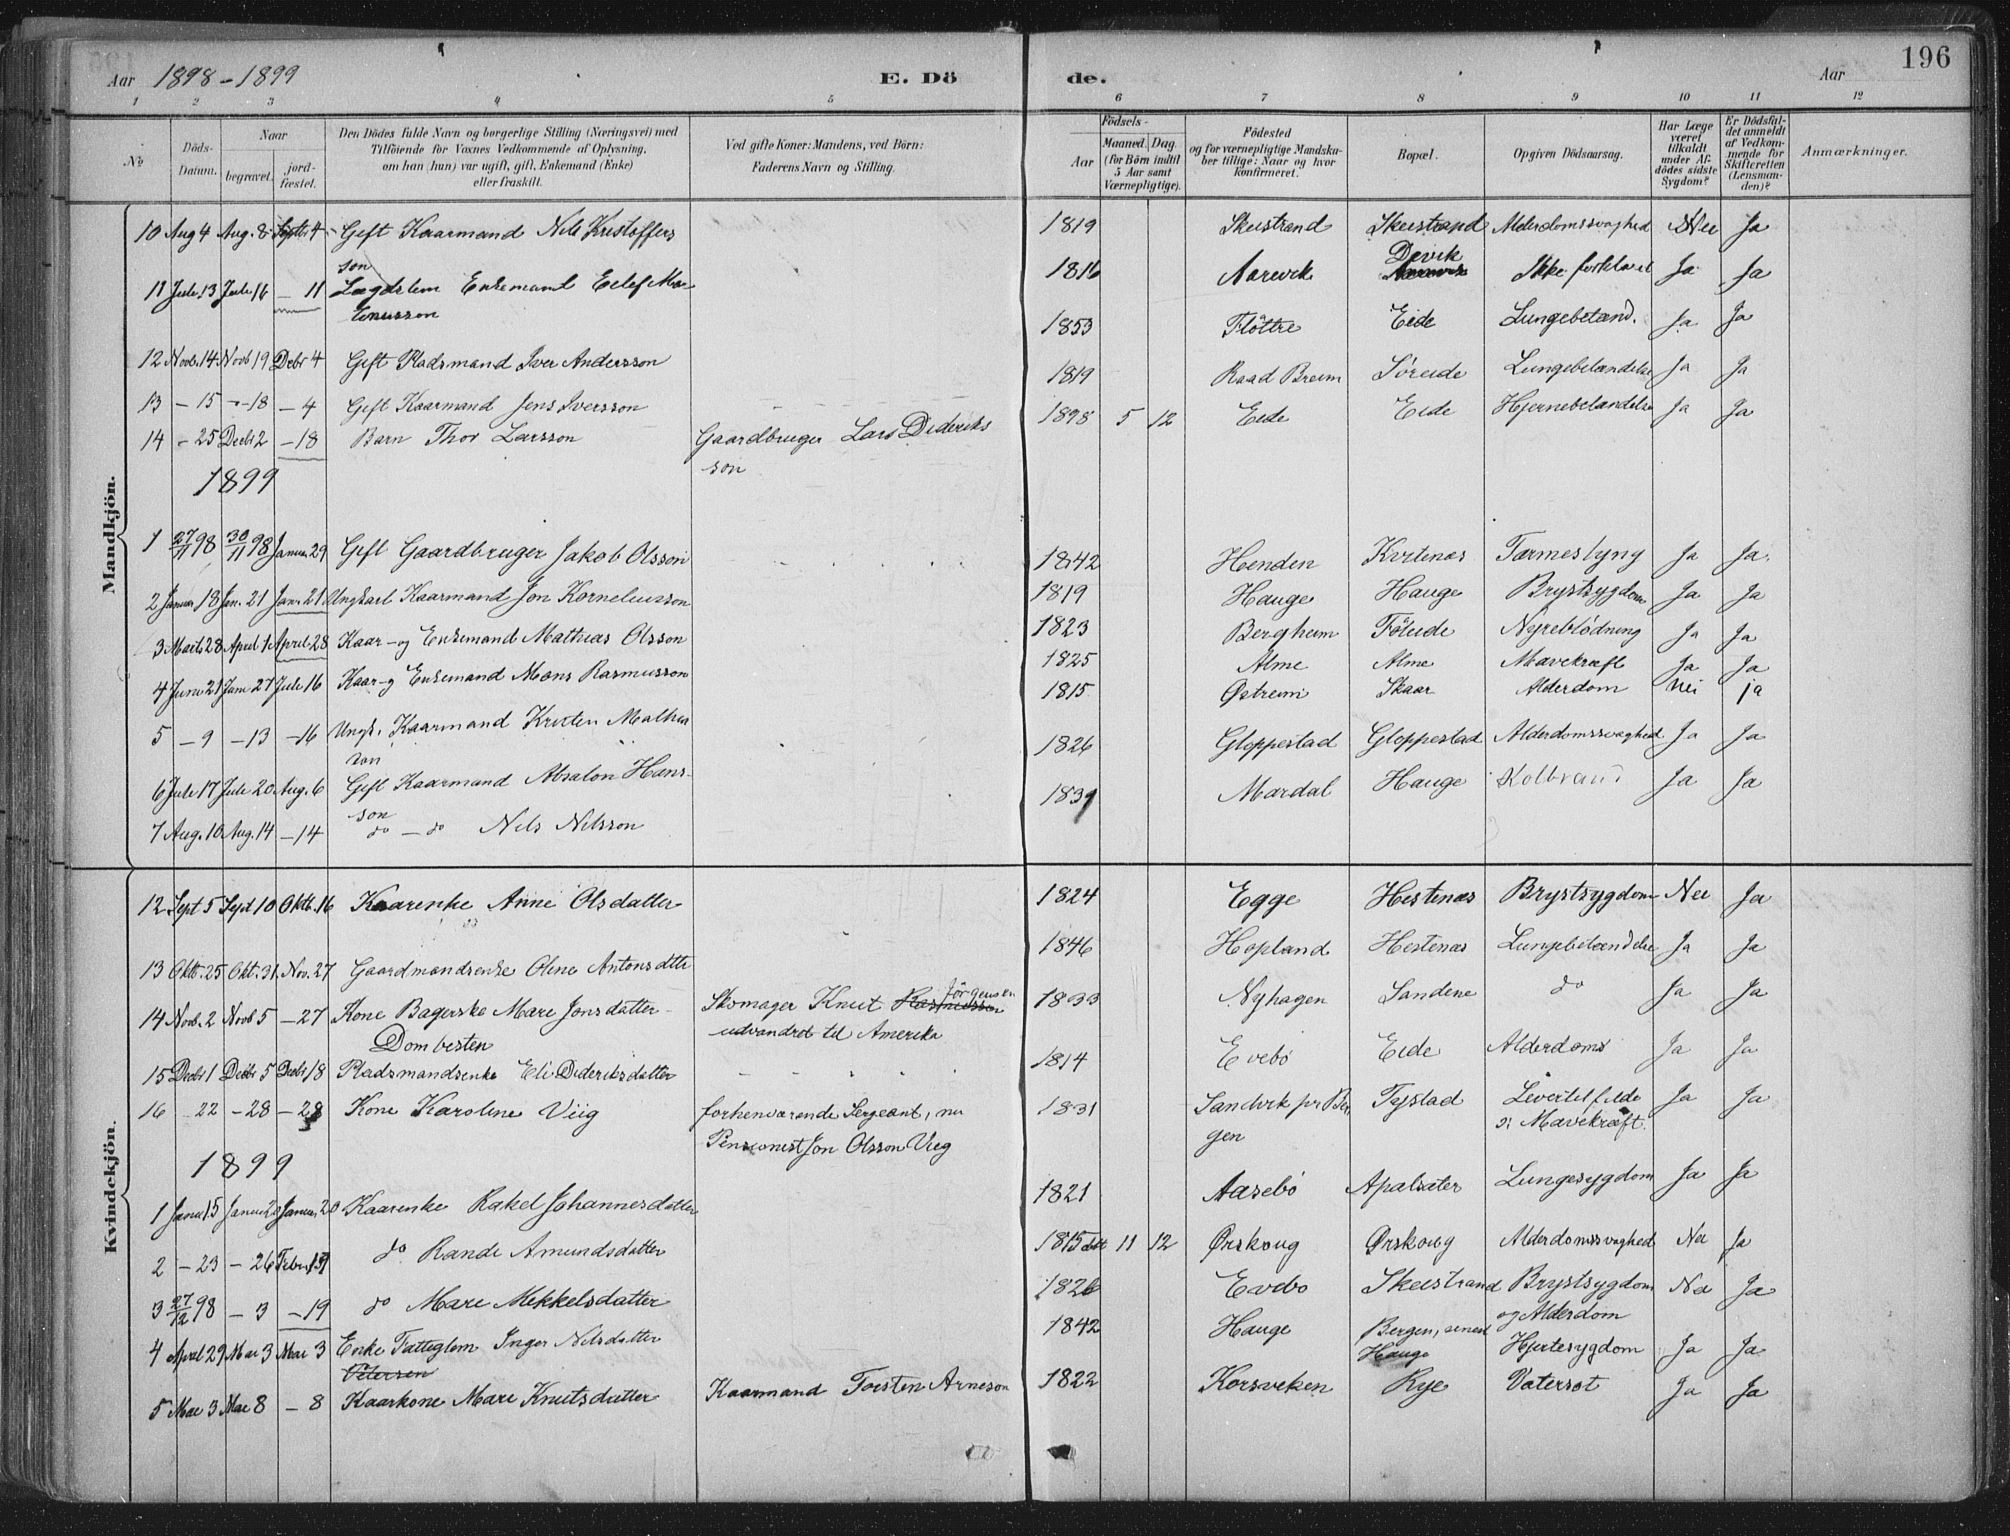 Aar 1898-1899 E. Dö de. Aar 196
1 2 3 4 5 6 7 8 9 10 11 12
No
Döds-Datum.
Naar
begravet.
jord-fæstet.
Den Dödes fulde Navn og borgerlige Stilling (Næringsvei) med
Tilföiende for Voxnes Vedkommende af Oplysning,
om han (hun) var ugift, gift, Enkemand (Enke)
eller fraskilt.
Ved gifte Koner: Mandens, ved Börn:
Faderens Navn og Stilling.
Födsels-
Aar
Maaned. Dag.
(for Börn indtil
5 Aar samt
Værnepligtige).
Födested
og for værnepligtige Mandska-
ber tillige: Naar og hvor
konfirmeret.
Bopæl.
Opgiven Dödsaarsag.
Har Læge
været
tilkaldt
under Af-
dödes sidste
Sygdom?
Er Dödsfal-
det anmeldt
af Vedkom-
mende for
Skifteretten
(Lensman-
den)?
Anmærkninger.
Mandkjön.
10 Aug 4 Aug. 8 Septbr 4 Gift Kaarmand Nils Kristoffers 1819 Skeistrand Skeistrand Alderdomssvaghed Nei Ja
son
11 Juli 13 Juli 16 - 11 Lægdslem Enkemand Eelef Mo- 1816 Aarevik Devik Ikke forklaret Ja Ja
tenusson
12 Novb. 14 Novb 19 Decbr 4 Gift Pladsmand Iver Andersson 1853 Flöttre Eide Lungebetænd. Ja Ja
13 - 15 - 18 - 4 Gift Kaarmand Jens Iversson 1819 Raad Breim Söreide Lungebetændelse Ja Ja
14 - 25 Decbr 2 - 18 Barn Thor Larsson Gaardbruger Lars Dideriks 1898 5 12 Eide Eide Hjernebetændelse Ja Ja
son
1899
1 27/11 98 30/11 98 Januar 29 Gift Gaardbruger Jakob Olsson 1842 Henden Kvitenæs Tarmeslyng Ja Ja.
2 Januar 18 Jan. 21 Jan. 21 Ungkarl Kaarmand Jon Korneliusson 1819 Hauge Hauge Brystsygdom Ja Ja
3 Marts 28 April 1 April 28 Kaar- og Enkemand Mathias Olsson 1823 Bergheim Föleide Nyreblödning Ja Ja
4 Juni 21 Juni 27 Juli 16 Kaar- og Enkemand Mons Rasmusson 1825 Alme Alme Mavekræft Ja Ja
5 - 9 - 13 - 16 Ungk. Kaarmand Kristen Mathias 1815 Østreim Skaar Alderdom nei ja
son
6 Juli 17 Juli 20 Aug. 6 Gift Kaarmand Absalon Hans- 1826 Gloppestad Gloppestad Alderdomssvaghed Ja Ja
son
7 Aug. 10 Aug. 14 - 14 do - do Nils Nilsson 1839 Mardal Hauge Kolbrand Ja Ja
Kvindekjön.
12 Sept 5 Sept 10 Oktb. 16 Kaarenke Anne Olsdatter 1824 Egge Hestenæs Brystsygdom Nei Ja
13 Oktb. 25 Okt. 31. Nov. 27 Gaardmandsenke Oline Antonsdttr 1846 Hopland Hestenæs Lungebetændelse Ja Ja
14 Novb. 2 Novb 5 - 27 Kone Bagerske Mari Jonsdatter Skomager Knut Rasmussen Jörgensen 1833 Nyhagen Sandene do Ja Ja
Dombesten udvandret til Amerika
15 Decbr 1 Decbr 5 Decbr 18 Pladsmandsenke Eli Dideriksdatter 1814 Evebö Eide Alderdoms Ja Ja
16 22 - 28 - 28 Kone Karoline Viig forhenværende Sergeant, nu 1831 Sandvik pr Ber Tystad Levertilfelde Ja Ja
Pensionist Jon Olsson Vieg gen ɔ: Mavekræft.
1899
1 Janua 15 Janua 20 Januar 20 Kaarenke Rakel Johannesdatter 1821 Aasebö Apalsæter Lungesygdom Ja Ja
2 - 23 - 26 Febru 19 do Rande Amundsdatter 1815 11 12 Ørskoug Ørskoug Alderdomssvaghed Nei Ja
3 27/12 98 - 3 - 19 do Mari Mikkelsdatter 1826 Evebo Skeistrand Brystsygdom Nei Ja
og Alderdom
4 April 29 Mai 3 Mai 3 Enke Fattiglem Inger Nilsdatter 1842 Hauge Bergen, senest Hjertesygdom Ja Ja
Petersen Hauge
5 Mai 3 Mai 8 - 8 Kaarkone Mari Knutsdatter Kaarmand Torsten Arneson 1822 Korsviken Rye Vatersot Ja Ja